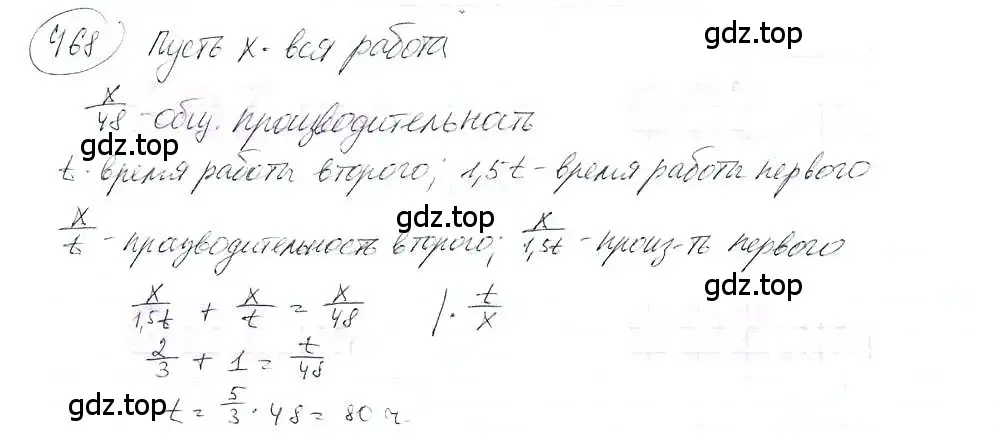 468 Пусть x - вся работа
gdz.top
gdz.top
x/48 - общ. производительность
gdz.top
t - время работы второго; 1,5t - время работы первого
gdz.top
x/t - производительность второго; x/1,5t - произ-ть первого
gdz.top
x/1,5t + x/t = x/48 | · t/x
2/3 + 1 = t/48
gdz.top
t = 5/3 · 48 = 80 ч.
gdz.top